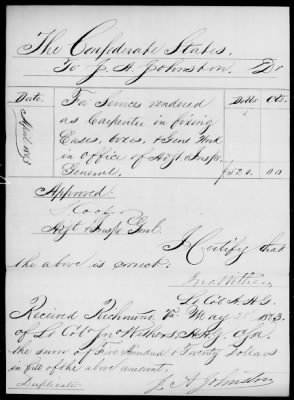 The Confederate States.
To J. A. Johnston. Dr
Date. Dolls Cts.
April 1863
For Services rendered
as Carpenter in fixing
Cases, boxes, & Genl Work
in Office of Adjt & Insp.
General. $520.00
Approved.
S. Cooper
Adjt & Insp Genl.
I Certify that
the above is correct.
Jno Withers
Lt Col A.A.G.
Received Richmond, Va. May 1863.
of Lt Col Jno Withers A.A.G. C.S.A.
the sum of Five Hundred & Twenty Dollars
in full of the above amount.
Duplicate J. A. Johnston